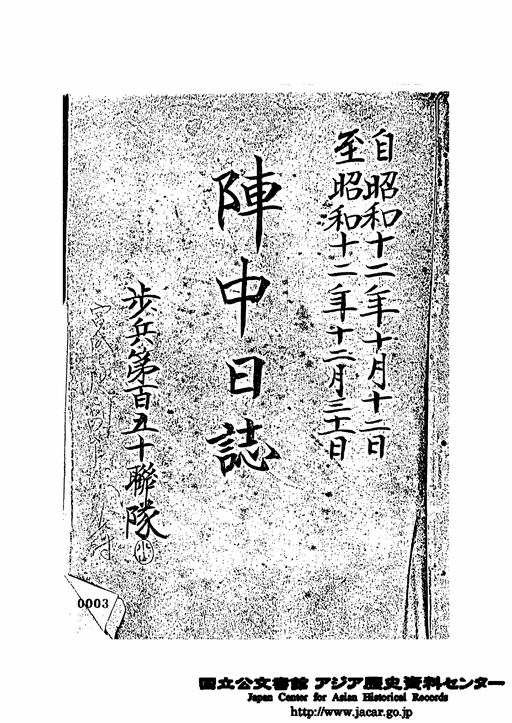 自昭和十二年十月十二日
至昭和十二年十二月三十日
陣中日誌
歩兵第百五十聯隊
0003
国立公文書館 アジア歴史資料センター
Japan Center for Asian Historical Records
http://www.jacar.go.jp